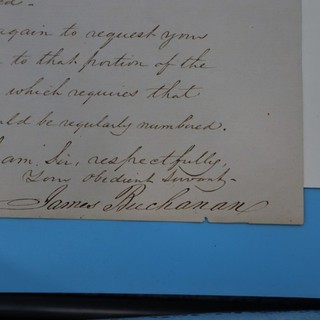 ed.
again to request your
to that portion of the
which requires that
uld be regularly numbered.
I am, Sir, respectfully,
Your obedient Servant
James Buchanan